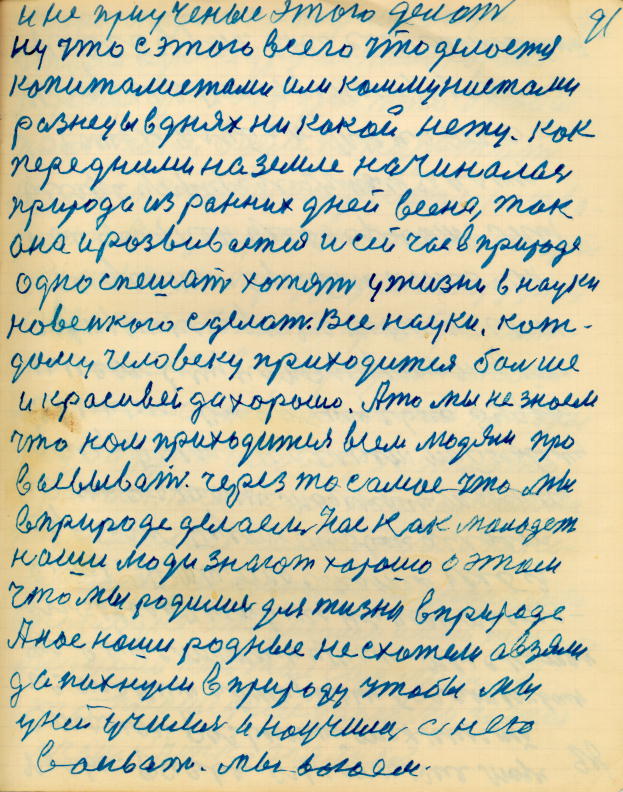 и не приученые этого делат 91
ну что с этого всего что делоется
копиталистами или коммунистами
разнецы в днях ни какой нету. Как
передними на земле начиналас
природа из ранних дней весна, так
она и розвивается и сей час в природе
одно спешат хотят у жизни в науки
новенкого сделат. Все науки. кож-
дому человеку приходится болше
и красивей да хорошо. А то мы не знаем
что нам приходится всем людям про
через то самое что мы
в природе делаем. Нас как молодеж
наши люди знают хорошо о этом
что мы родилис для жизни в природе
А нас наши родные не схотели а взяли
да пихнули в природу чтобы мы
у ней училис и научилис с нею
воиват. мы воюем.